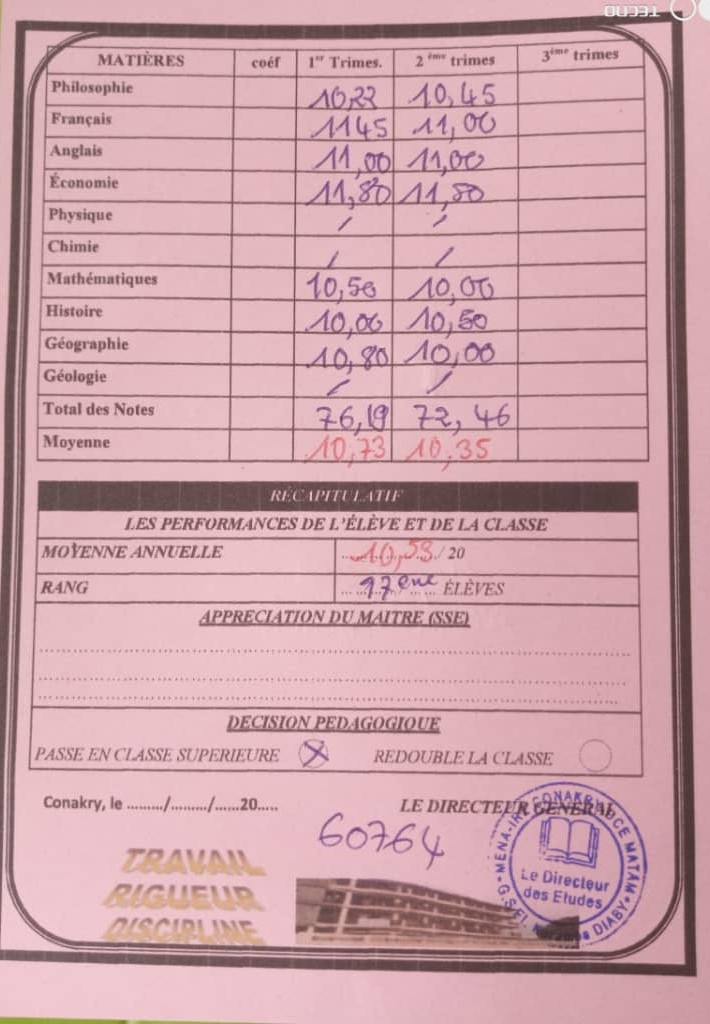 TECNO
MATIÈRES coéf 1er Trimes. 2 ème trimes 3ème trimes
Philosophie 10,22 10,45
Français 1145 11,00
Anglais 11,00 11,00
Économie 11,80 11,50
Physique / /
Chimie / /
Mathématiques 10,50 10,00
Histoire 10,00 10,50
Géographie 10,80 10,00
Géologie / /
Total des Notes 76,19 72,46
Moyenne 10,73 10,35
RÉCAPITULATIF
LES PERFORMANCES DE L'ÉLÈVE ET DE LA CLASSE
MOYENNE ANNUELLE 10,53 / 20
RANG 17ème ÉLÈVES
APPRECIATION DU MAITRE (SSE)
DECISION PEDAGOGIQUE
PASSE EN CLASSE SUPERIEURE X REDOUBLE LA CLASSE
Conakry, le ........./......../......20.... LE DIRECTEUR GENERAL
60764
CONAKRY
MATAM
Le Directeur
des Etudes
DIABY
TRAVAIL
RIGUEUR
DISCIPLINE